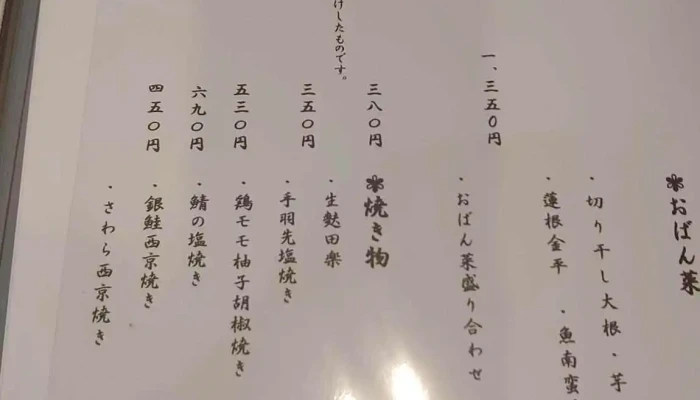 おばん菜
・切り干し大根 ・芋
・蓮根金平 ・魚南蛮
一、三五〇円
・おばん菜盛り合わせ
けしたものです。
焼き物
三八〇円
・生麩田楽
三五〇円
・手羽先塩焼き
五三〇円
・鶏モモ柚子胡椒焼き
六九〇円
・鯖の塩焼き
四五〇円
・銀鮭西京焼き
・さわら西京焼き